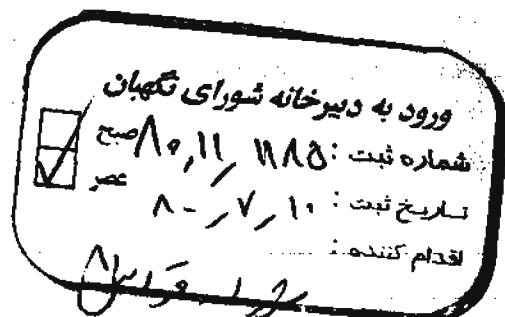 ورود به دبیرخانه شورای نگهبان
شماره ثبت: ۸۰,۱۱,۱۱۸۵ صبح
تاریخ ثبت: ۸۰,۷,۱۰ عصر
اقدام کننده: